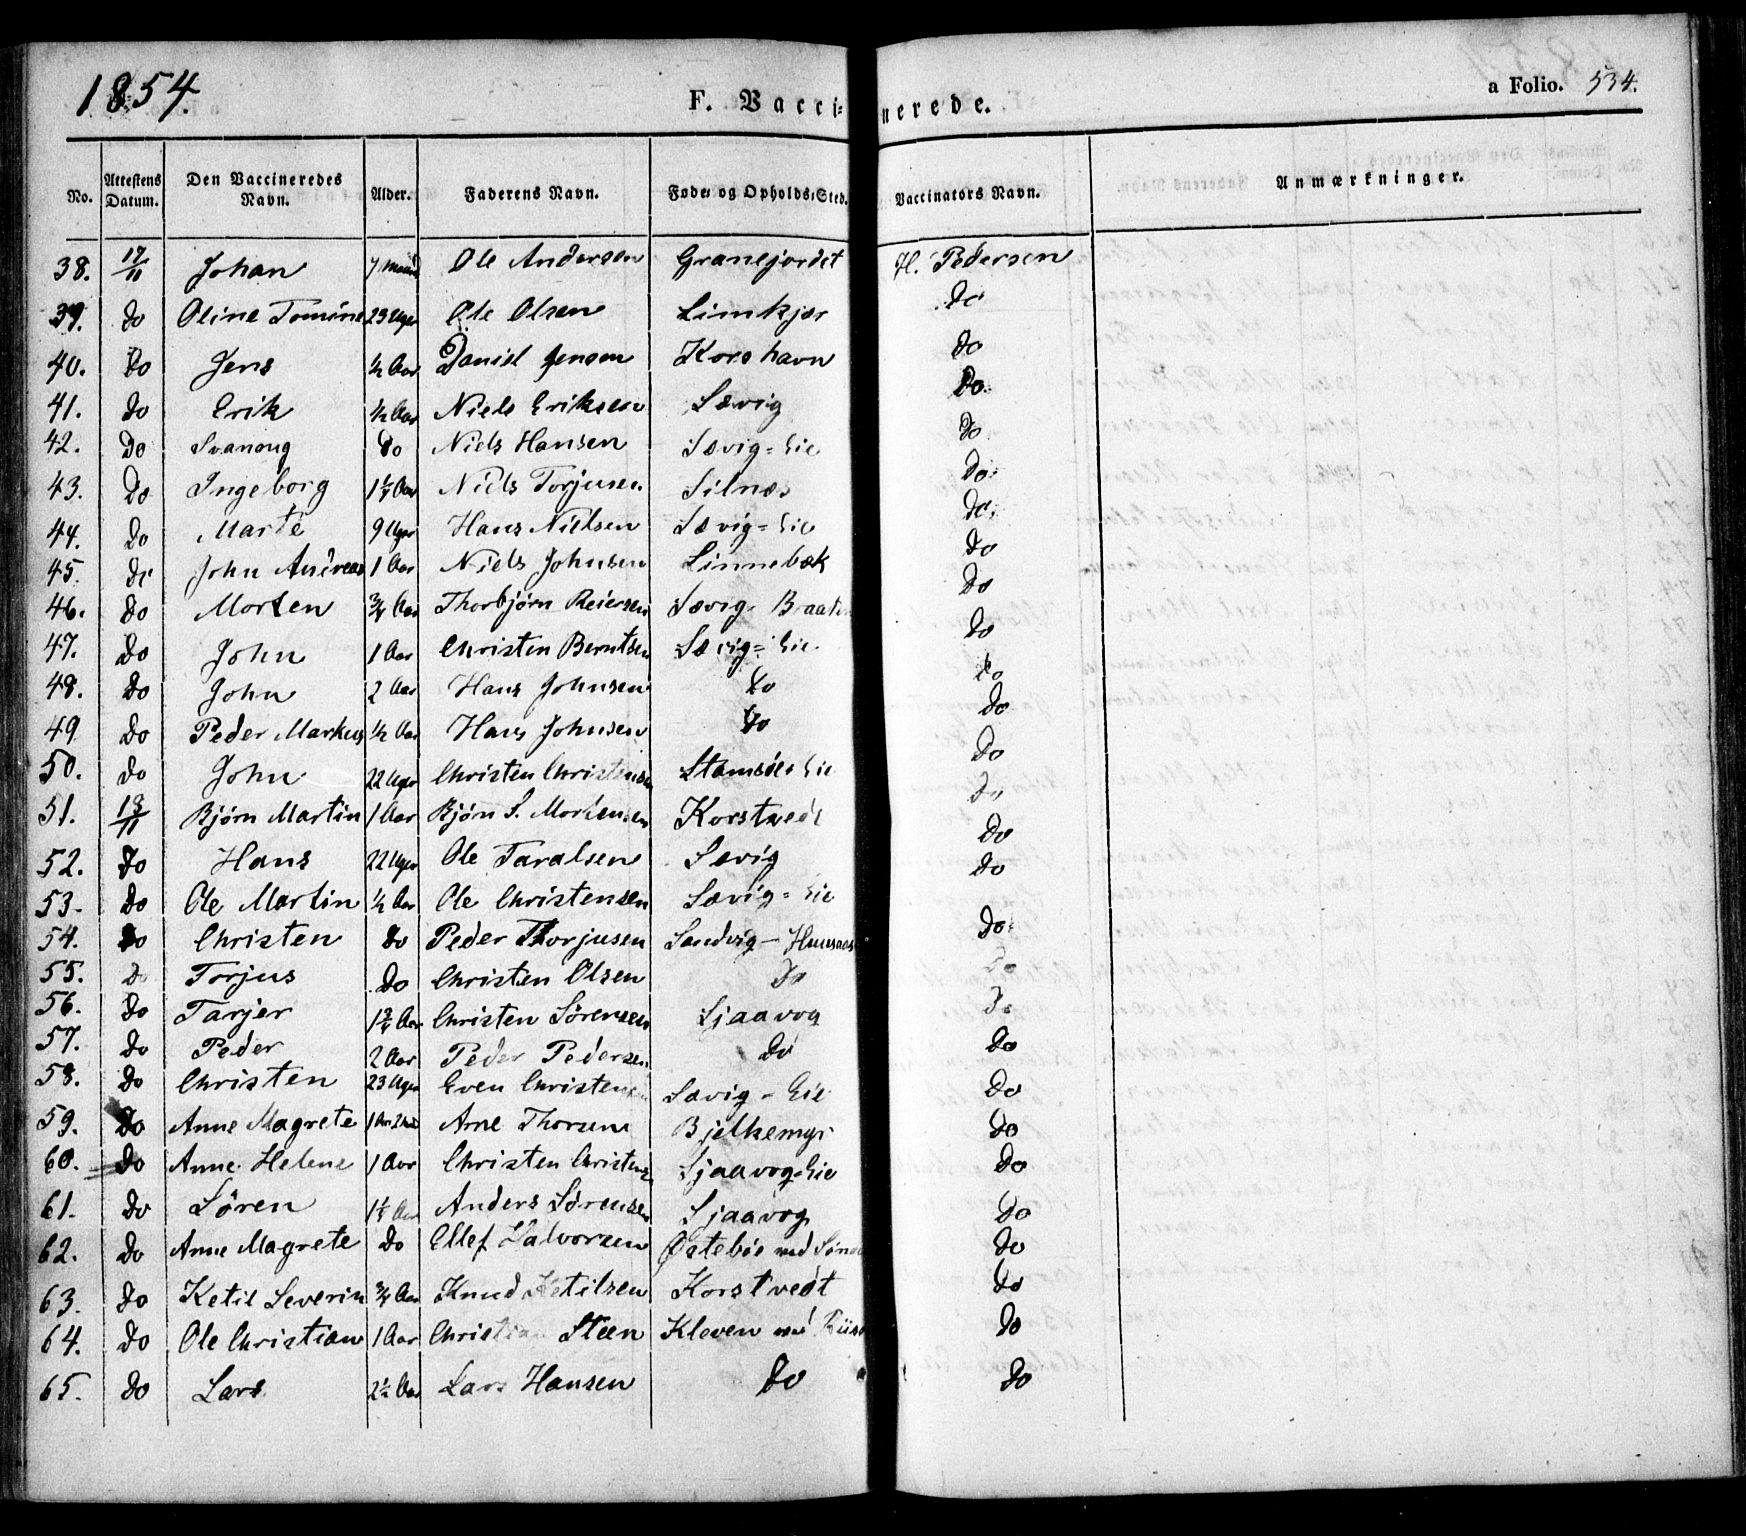 1854.
F. Vaccinerede.
a Folio. 534.
No. Attestens Datum. Den Vaccineredes Navn. Alder. Faderens Navn. Føde- og Opholds-Sted. Vaccinators Navn. Anmærkninger.
38. 17/11 Johan 7 Ole Andersen Granejordet H. Pedersen
39. do Oline Tomine 23 Uger Ole Olsen Limkjær do
40. Do Jens 1/2 Aar Daniel Jensen Korshavn do
41. do Erik 1/2 Aar Niels Eriksen Sævig Do.
42. Do Svanaug do Niels Hansen Sævig-Eie do
43. Do Ingeborg 1 1/4 Aar Niels Torjusen Silnæs Do
44. Do Marte 9 Uger Hans Nielsen Sævig-Eie do
45. do John Andreas 1 Aar Niels Johnsen Linnebæk do
46. do Morten 3/4 Aar Thorbjørn Reiersen Sævig-Braaten do
47. Do John 1 Aar Christen Berntsen Sævig-Eie do
48. Do John 2 Aar Hans Johnsen do do
49 Do Peder Markus 1/2 Aar Hans Johnsen do do
50. do John 22 Uger Christen Christensen Stamsöe-Eie Do
51. 18/11 Bjørn Martin 1 Aar Bjørn S. Mortensen Korstvedt do
52. do Hans 22 Uger Ole Taralsen Sævig do
53. do Ole Martin 1/2 Aar Ole Christensen Sævig-Eie do
54. do Christen do Peder Thorjusen Sandvig- Do
55. do Torjus do Christen Olsen do do
56. do Tarjer 1 3/4 Aar Christen Sörensen Sjaavog do
57. do Peder 2 Aar Peder Pedersen do do
58. do Christen 23 Uger Even Christensen Sævig-Eie Do
59. do Anne Magrete Arne Thorsen Bjelkemyr do
60. do Anne Helene 1 Aar Christen Christens Sjaavog-Eie do
61. do Sören Anders Sörensen Sjaavog Do
62. do Anne Magrete do Ellef Halvorsen Östeböe ved do
63. do Ketil Severin 3/4 Aar Knud Ketilsen Korstvedt do
64. do Ole Christian 1 Aar Christian Steen Kleven ved do
65. do Lars 2 1/2 Aar Lars Hansen do do